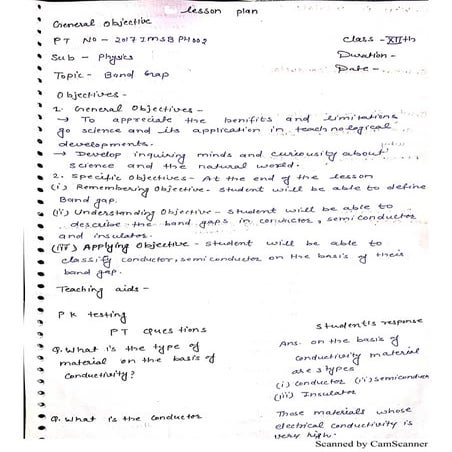 Lesson plan
General Objective
PT NO - 2017IMSBPH002 Class - XIIth
Sub - Physics Duration -
Topic - Band Gap Date -
Objectives -
1. General Objectives -
→ To appreciate the benifits and limitations
go science and its application in teachnological
developments.
→ Develop inquiring minds and curiousity about
science and the natural world.
2. Specific Objectives - At the end of the lesson
(i) Remembering Objective - Student will be able to define
Band gap.
(ii) Understanding Objective - Student will be able to
describe the band gaps in conductor, semiconductor
and insulator.
(iii) Applying Objective - Student will be able to
classify conductor, semiconductor on the basis of their
band gap.
Teaching aids -
P K testing
PT Questions Student's response
Q. What is the type of Ans. on the basis of
material on the basis of conductivity material
conductivity? are 3 types
(i) Conductor (ii) Semiconductor
(iii) Insulator
Q. What is the conductor Those materials whose
electrical conductivity is
very high.
Scanned by CamScanner